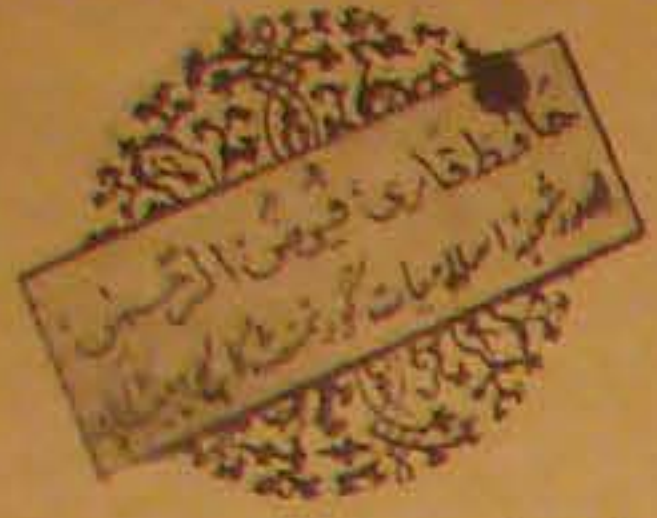 حافظ قاری فیوض الرحمٰن
صدر شعبۂ اسلامیات گورنمنٹ کالج